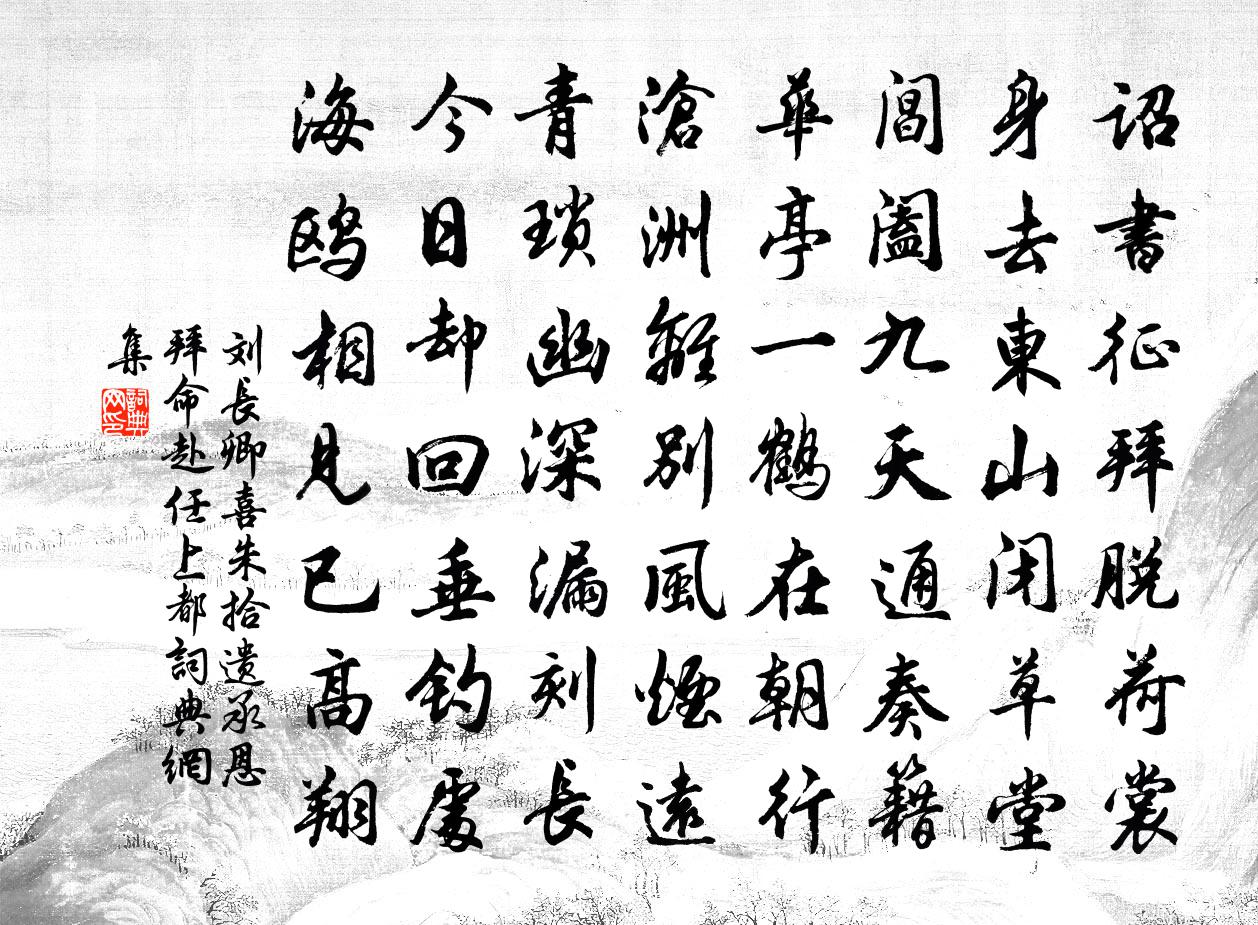 詔書征拜脫荷裳
身去東山闭草堂
閶闔九天通奏籍
華亭一鶴在朝行
滄洲離別風煙遠
青瑣幽深漏刻長
今日却回垂钓處
海鸥相見已高翔
刘長卿喜朱拾遗承恩
拜命赴任上都詞典網
集
詞典网印